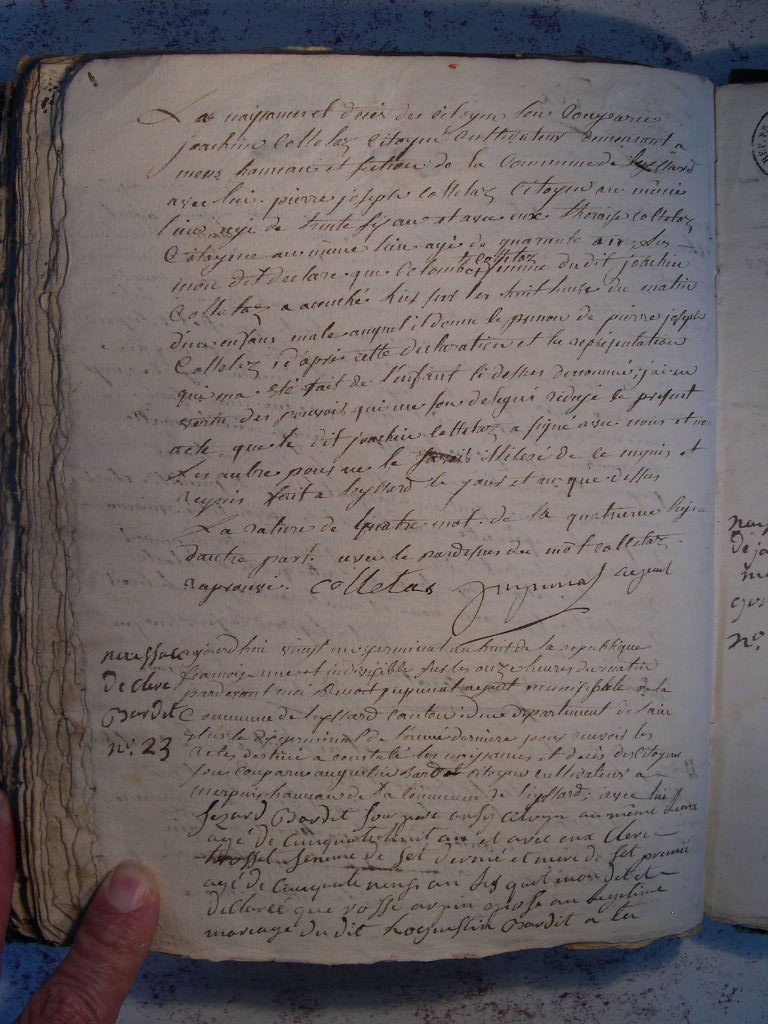 La naissances et décès des citoyen son Comparu
joachim Colletaz Citoyen Cultivateur demeurant a
hameau et section de la Commune de leyssard
avec lui pierre joseph Colletaz Citoyen au même
lieu agé de trente six an et avec eux theraise Colletaz
Citoyene au même lieu agé de quarante an Les
mon dit declare que Colombe Colletaz femme du dit joachim
Colletaz a acouché hier sur les huit heure du matin
d'un enfans male auquel il donne le prenon de pierre joseph
Colletaz d'après cette declaration et la représentation
qui ma été fait de l'enfant ci dessus denommé; j'ai en
vertu des pouvoirs qui me son delegués rédigé le present
acte que le dit joachim Colletaz a signé avec nous et non
Les autre pour ne le savoir illiteré de ce enquis et
requis fait a leyssard le jour et an que dessus
La rature de quatre mot de la quatrieme ligne
dautre part avec le pardessus du mot colletaz
aprouvé. Colletas
naissance
De clere
Bardit
no. 23
ajourdhui vingt germinal an huit de la republique
francoise une et indivisible sur les onze heures du matin
pardevant moi Benoit agent de la
Commune de leyssard canton departement de l'ain
elus le dix germinal de l'anne derniere pour recevoir les
actes destiné a constaté les naissances et décès des citoyens
son Comparu augustin Bardit citoyen cultivateur a
hameau de la commune de leyssard; avec lui
Bardit son pere aussy citoyen au même lieu
agé de cinquante huit an et avec eux clere
femme de set dernié et mere de set premié
agé de cinquante neuf an les quel mon dit et
declaréé que
mariage du dit hogustin Bardit a
nay
De jo
no.